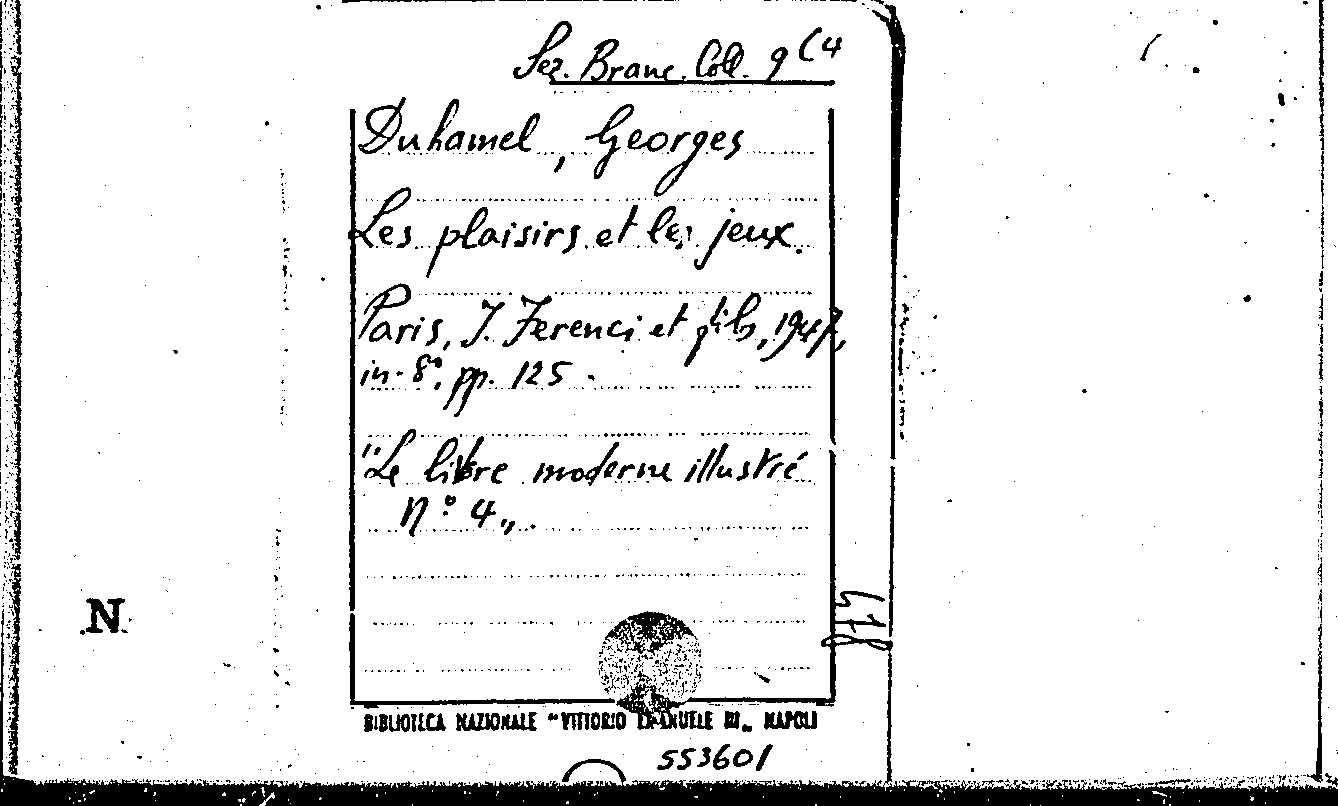 Sez. Branc. Coll. 9 C 4
Duhamel, Georges
Les plaisirs et les jeux.
Paris, J. Ferenci et fils, 1947,
in-8°, pp. 125.
"Le livre moderne illustré
N° 4„.
478
N.
BIBLIOTECA NAZIONALE "VITTORIO EMANUELE III„ NAPOLI
553601